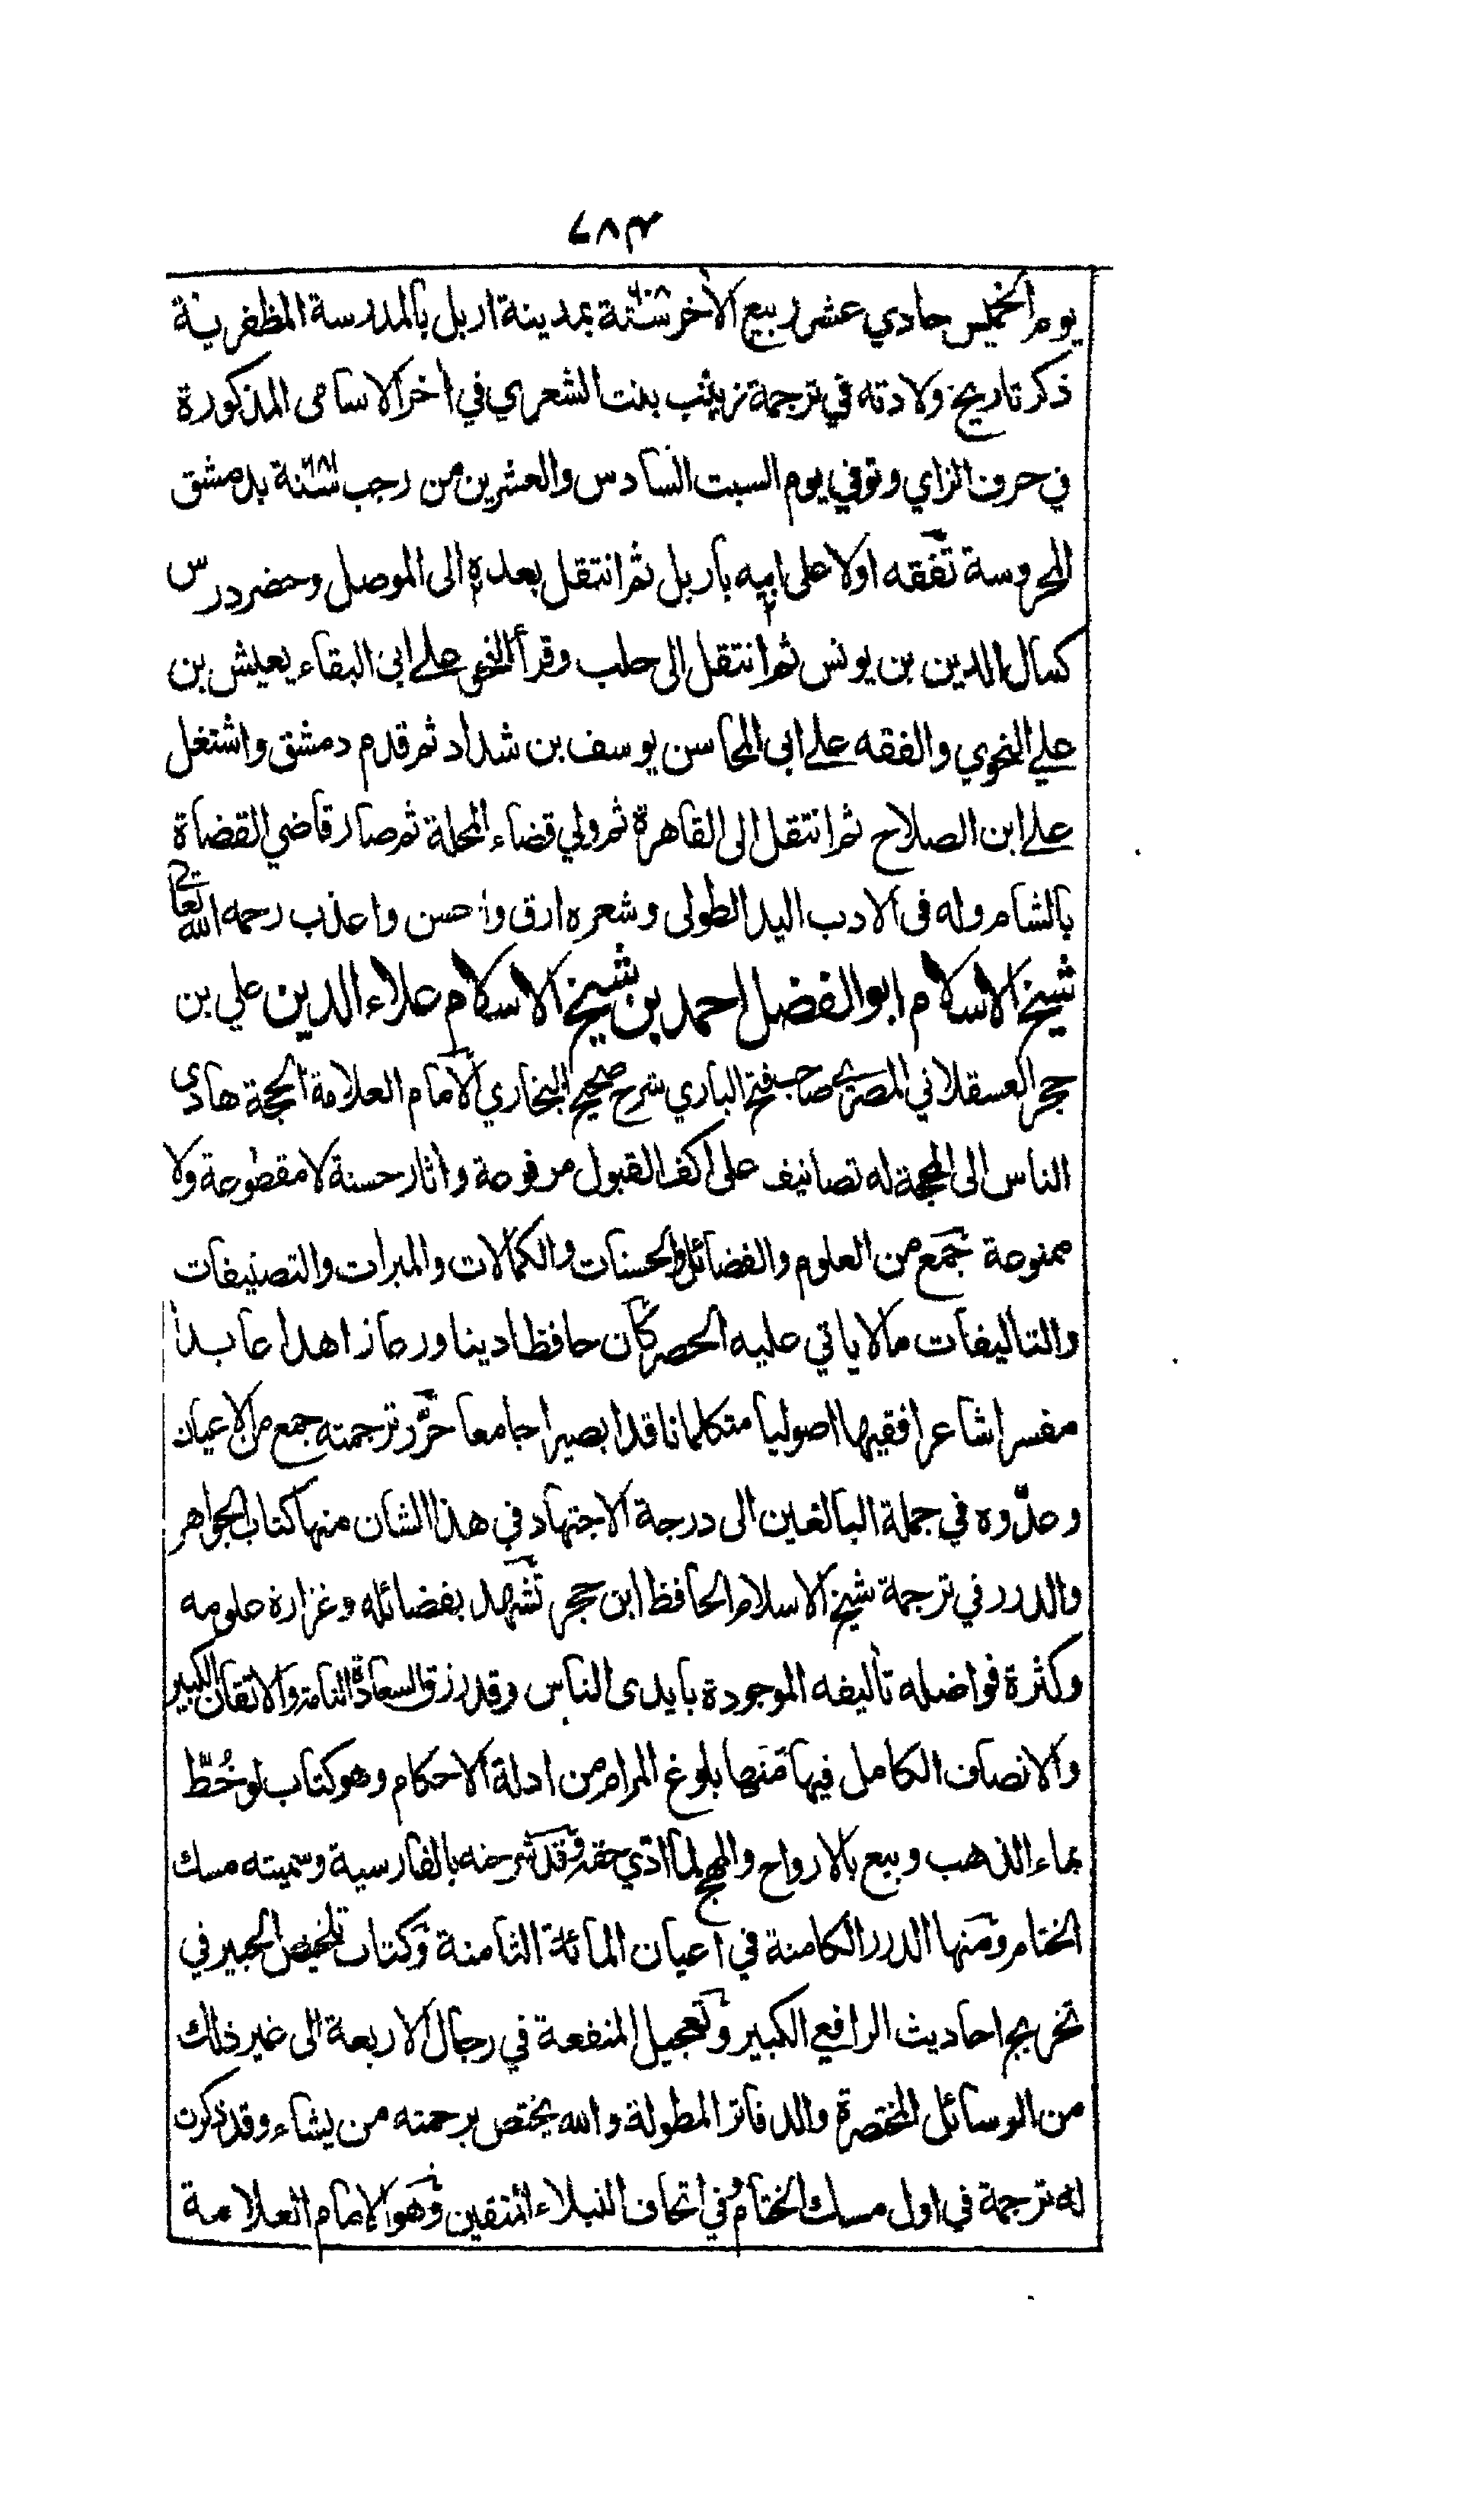 ٧٨٣
يوم الخميس حادي عشر ربيع الآخر سنة ٦٠٨ بمدينة اربل بالمدرسة المظفرية
ذكر تاريخ ولادته في ترجمة زينب بنت الشعري في اخر الاسامى المذكورة
في حرف الزاي وتوفي يوم السبت السادس والعشرين من رجب سنة ٦٨١ بدمشق
المحروسة تفقه اولا على ابيه باربل ثم انتقل بعده الى الموصل وحضر درس
كمال الدين بن يونس ثم انتقل الى حلب وقرأ النحو على ابى البقاء يعيش بن
علي النحوي والفقه على ابى المحاسن يوسف بن شداد ثم قدم دمشق واشتغل
على ابن الصلاح ثم انتقل الى القاهرة ثم ولي قضاء المحلة ثم صار قاضي القضاة
بالشام وله فى الادب اليد الطولى وشعره ارق واحسن واعذب رحمه الله تعالى
شيخ الاسلام ابو الفضل احمد بن شيخ الاسلام علاء الدين علي بن
حجر العسقلاني المصري صاحب فتح الباري شرح صحيح البخاري الامام العلامة الحجة هادى
الناس الى المحجة له تصانيف على اكف القبول مرفوعة واثار حسنة لا مقطوعة ولا
ممنوعة جمع من العلوم والفضائل والحسنات والكمالات والمبرات والتصنيفات
والتاليفات ما لا ياتي عليه الحصر كان حافظا دينا ورعا زاهدا عابدا
مفسرا شاعرا فقيها اصوليا متكلما ناقدا بصيرا جامعا حرّر ترجمته جمع من الاعيان
وعدّوه في جملة البالغين الى درجة الاجتهاد في هذا الشان منها كتاب الجواهر
والدرر في ترجمة شيخ الاسلام الحافظ ابن حجر تشهد بفضائله وغزارة علومه
وكثرة فواضله تأليفه الموجودة بايدى الناس وقد رزق السعادة التامة والاتقان الكبير
والانصاف الكامل فيها منها بلوغ المرام من ادلة الاحكام وهو كتاب لو خُطّ
بماء الذهب وبيع بالارواح والمهج لما ادّي حقه وقد شرحته بالفارسية وسميته مسك
الختام ومنها الدرر الكامنة في اعيان المائة الثامنة وكتاب تلخيص الحبير في
تخريج احاديث الرافعي الكبير وتعجيل المنفعة في رجال الاربعة الى غير ذلك
من الوسائل المختصرة والدفاتر المطولة والله يختص برحمته من يشاء وقد ذكرت
له ترجمة في اول مسك الختام وفي اتحاف النبلاء المتقين وهو الامام العلامة